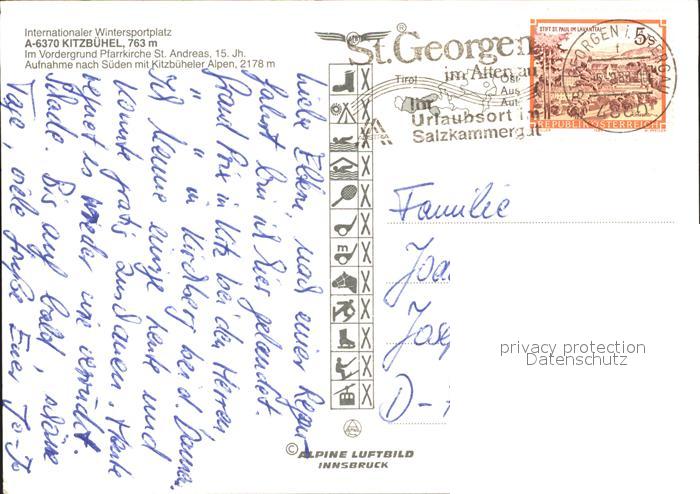 Internationaler Wintersportplatz
A-6370 KITZBÜHEL, 763 m
Im Vordergrund Pfarrkirche St. Andreas, 15. Jh.
Aufnahme nach Süden mit Kitzbüheler Alpen, 2178 m
St. Georgen
im Atter
Tirol
Ihr
Urlaubsort im
Salzkammergut
STIFT ST. PAUL IM LAVANTTAL
5
REPUBLIK ÖSTERREICH
Liebe Eltern, nach einer Regen-
fahrt bin ich hier gelandet.
Grand Prix in Kitz bei den Herren
" " in Kirchberg bei d. Damen.
Ich kenne einige heute und
konnte gratis zuschauen. Heute
regnet es wieder wie verrückt.
Schade. Bis auf bald, schöne
Tage, viele Grüße Euer
Familie
D-
privacy protection
Datenschutz
© ALPINE LUFTBILD
INNSBRUCK